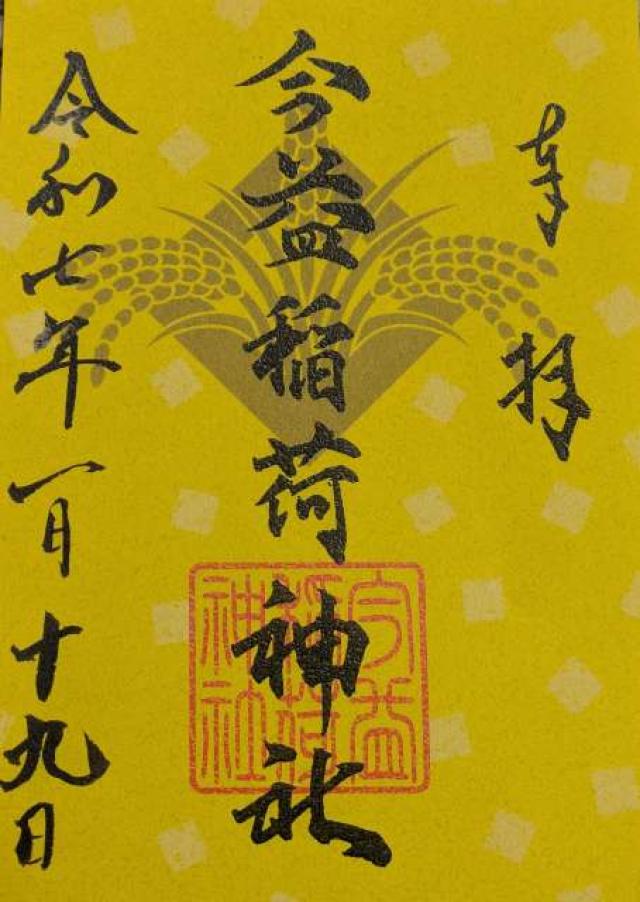 奉拝
今益稲荷神社
今益
稲荷
神社
令和七年一月十九日